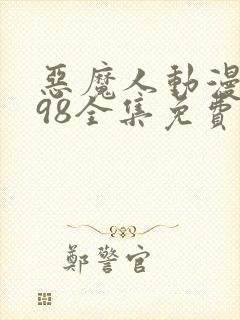 惡魔人動漫
98全集免費
鄭警官